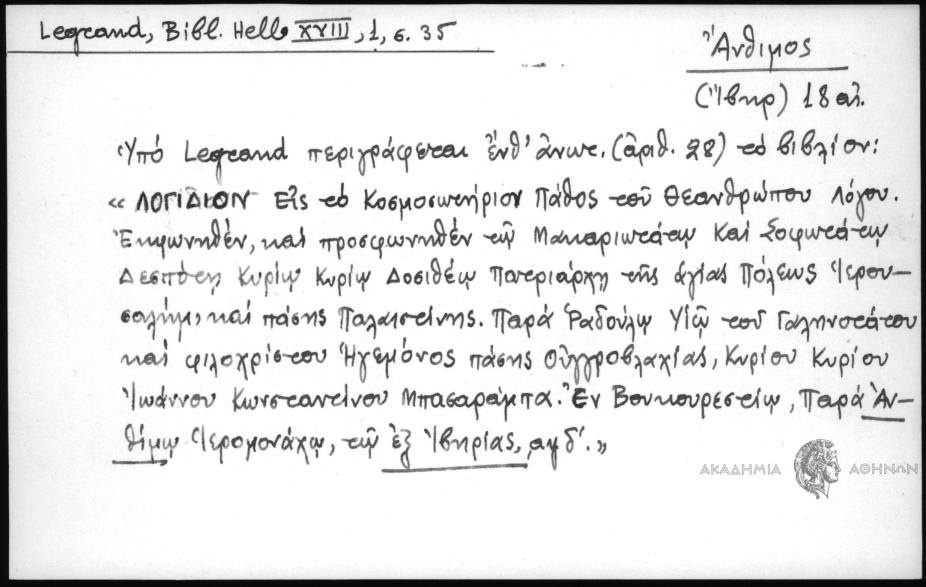 Legrand, Bibl. Hell. XVIII, 1, σ. 35
Ἄνθιμος
(Ἴβηρ) 18 αἰ.
Ὑπό Legrand περιγράφεται ἔνθ' ἄνωτ. (ἀριθ. 28) τό βιβλίον:
« ΛΟΓΙΔΙΟΝ Εἰς τό Κοσμοσωτήριον Πάθος τοῦ Θεανθρώπου Λόγου.
Ἐκφωνηθέν, καί προσφωνηθέν τῷ Μακαριωτάτῳ Καί Σοφωτάτῳ
Δεσπότῃ Κυρίῳ Κυρίῳ Δοσιθέῳ Πατριάρχῃ τῆς ἁγίας Πόλεως Ἱερου-
σαλήμ, καί πάσης Παλαιστίνης. Παρά Ῥαδούλῳ Υἱῷ τοῦ Γαληνοτάτου
καί φιλοχρίστου Ἡγεμόνος πάσης Οὑγγροβλαχίας, Κυρίου Κυρίου
Ἰωάννου Κωνσταντίνου Μπασαράμπα. Ἐν Βουκουρεστίῳ, Παρά Ἀν-
θίμῳ Ἱερομονάχῳ, τῷ ἐξ Ἰβηρίας, ͵αψδ΄. »
ΑΚΑΔΗΜΙΑ ΑΘΗΝΩΝ